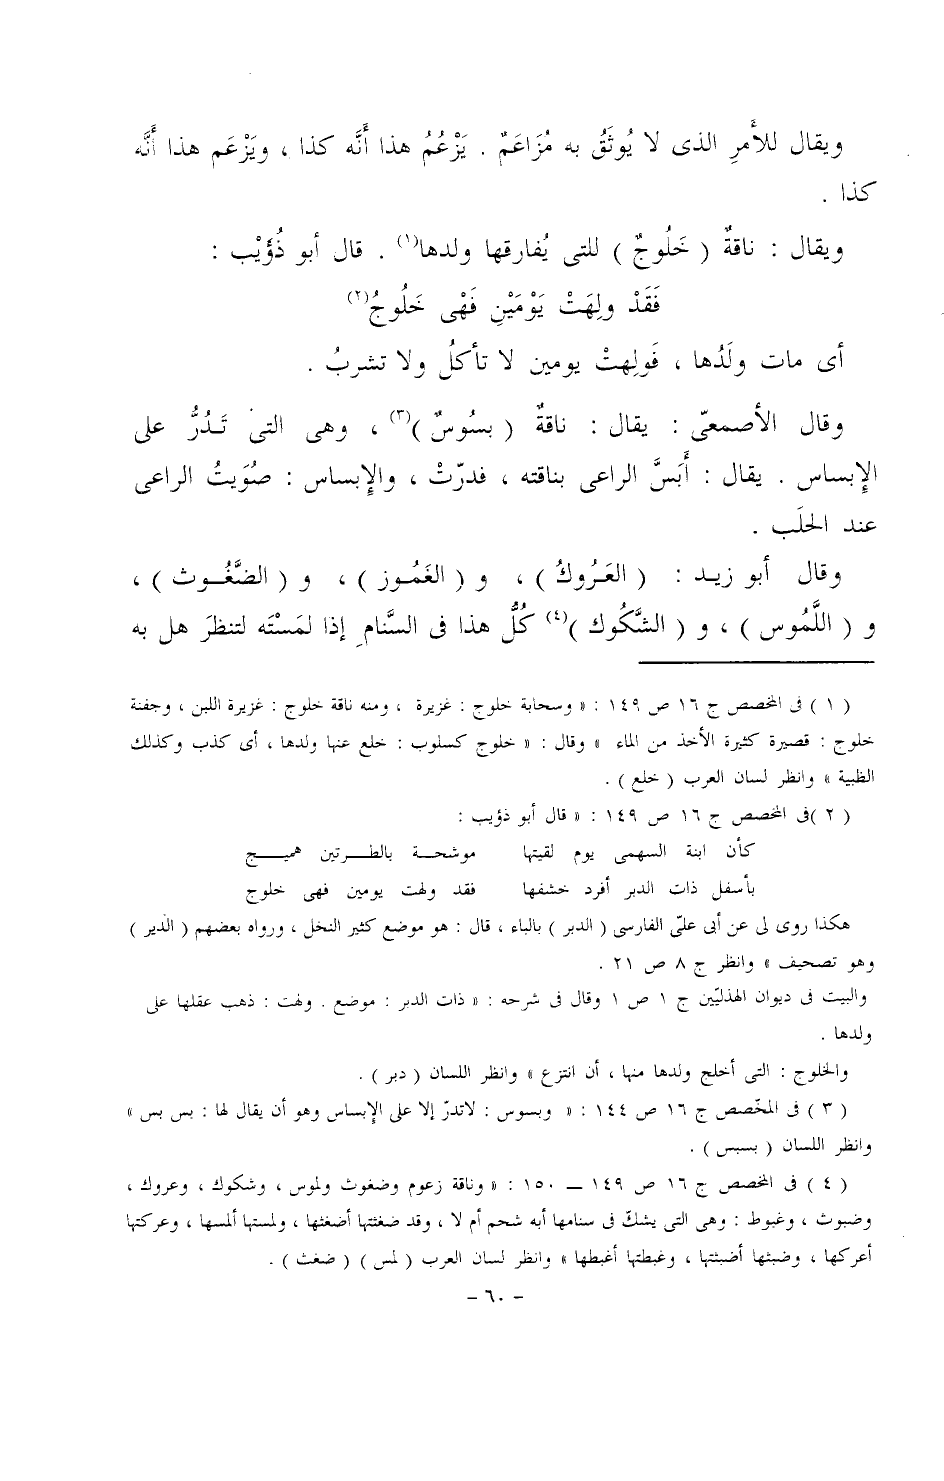 ويقال للأمرِ الذى لا يُوثَقُ به مُزَاعَمٌ . يَزْعُمُ هذا أَنَّه كذا ، ويَزْعَم هذا أَنَّه
كذا .
ويقال : ناقةٌ ( خَلُوجٌ ) للتى يُفارقها ولدها(١) . قال أبو ذُؤَيْب :
فَقَدْ ولِهَتْ يَوْمَيْنِ فَهْى خَلُوجُ(٢)
أى مات ولَدُها ، فَولِهتْ يومين لا تأكلُ ولا تشربُ .
وقال الأصمعىّ : يقال : ناقةٌ ( بسُوسٌ )(٣) ، وهى التى تَدُرُّ على
الإِبساس . يقال : أَبَسَّ الراعى بناقته ، فدرّتْ ، والإِبساس : صُوَيتُ الراعى
عند الحلَب .
وقال أبو زيد : ( العَرُوكُ ) ، و ( الغَمُوز ) ، و ( الضَّغُوث ) ،
و ( اللَّمُوس ) ، و ( الشَّكُوك )(٤) كُلُّ هذا فى السَّنامِ إذا لمَسْتَه لتنظرَ هل به
( ١ ) فى المخصص ج ١٦ ص ١٤٩ : « وسحابة خلوج : غزيرة ، ومنه ناقة خلوج : غزيرة اللبن ، وجفنة
خلوج : قصيرة كثيرة الأخذ من الماء » وقال : « خلوج كسلوب : خلع عنها ولدها ، أى كذب وكذلك
الظبية » وانظر لسان العرب ( خلع ) .
( ٢ )فى المخصص ج ١٦ ص ١٤٩ : « قال أبو ذؤيب :
كأن ابنة السهمى يوم لقيتها موشحة بالطرتين هميج
بأسفل ذات الدبر أفرد خشفها فقد ولهت يومين فهى خلوج
هكذا روى لى عن أبى علىّ الفارسى ( الدبر ) بالباء ، قال : هو موضع كثير النخل ، ورواه بعضهم ( الدير )
وهو تصحيف » وانظر ج ٨ ص ٢١ .
والبيت فى ديوان الهذليّين ج ١ ص ١ وقال فى شرحه : « ذات الدبر : موضع . ولهت : ذهب عقلها على
ولدها .
والخلوج : التى أخلج ولدها منها ، أن انتزع » وانظر اللسان ( دبر ) .
( ٣ ) فى المخّصص ج ١٦ ص ١٤٤ : « وبسوس : لاتدرّ إلا على الإبساس وهو أن يقال لها : بس بس »
وانظر اللسان ( بسبس ) .
( ٤ ) فى المخصص ج ١٦ ص ١٤٩ – ١٥٠ : « وناقة زعوم وضغوث ولموس ، وشكوك ، وعروك ،
وضبوث ، وغبوط : وهى التى يشكّ فى سنامها أبه شحم أم لا ، وقد ضغثتها أضغثها ، ولمستها ألمسها ، وعركتها
أعركها ، وضبثها أضبثتها ، وغبطتها أغبطها » وانظر لسان العرب ( لمس ) ( ضغث ) .
- ٦٠ -